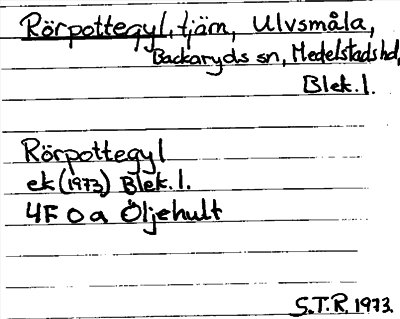 Rörpottegyl, tjärn, Ulvsmåla,
Backaryds sn, Medelstads hd,
Blek. l.
Rörpottegyl
ek (1973) Blek. l.
4F 0 a Öljehult
S.T.R. 1973.